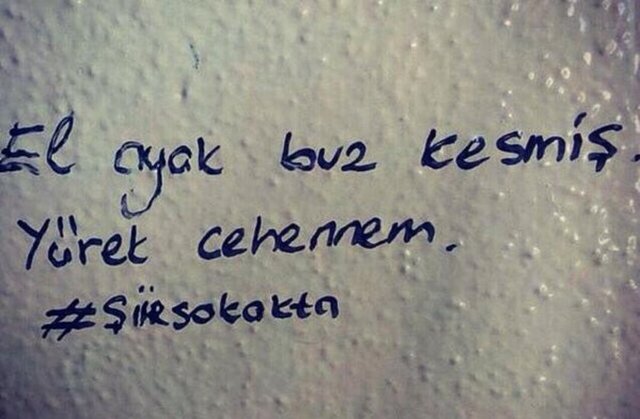 El ayak buz kesmiş.
Yüret cehennem.
#Şiirsokakta